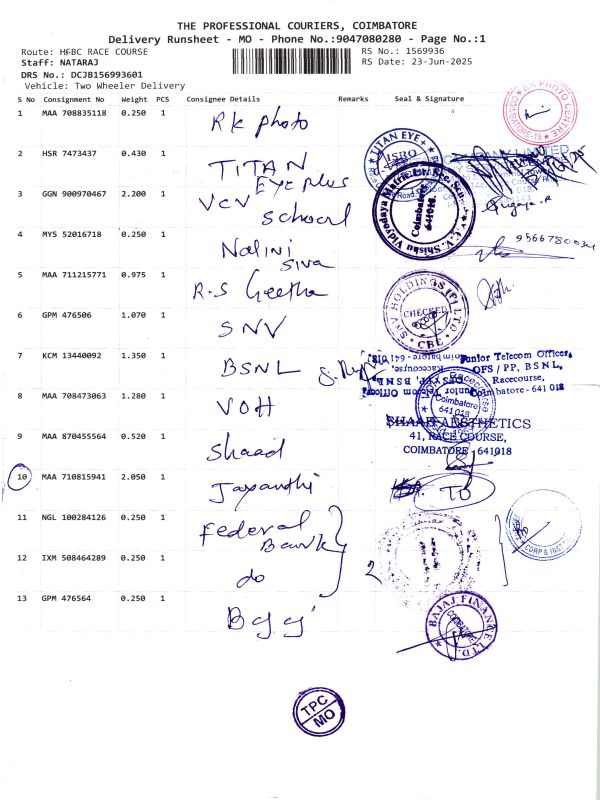 THE PROFESSIONAL COURIERS, COIMBATORE
Delivery Runsheet - MO - Phone No.:9047080280 - Page No.:1
Route: H&BC RACE COURSE
RS No.: 1569936
Staff: NATARAJ
RS Date: 23-Jun-2025
DRS No.: DCJB156993601
Vehicle: Two Wheeler Delivery
S No Consignment No Weight PCS Consignee Details Remarks Seal & Signature
1 MAA 708835118 0.250 1 RK photo
2 HSR 7473437 0.430 1 TITAN Eye plus
TITAN EYE+
3 GGN 900970467 2.200 1 VCV School
Coimbatore 641018.
4 MYS 52016718 0.250 1 Nalini Siva
5 MAA 711215771 0.975 1 R.S Geetha
6 GPM 476506 1.070 1 SNV
SNV HOLDINGS (P) LTD.
CHECKED
CBE
7 KCM 13440092 1.350 1 BSNL
Junior Telecom Officer,
OFS / PP, BSNL,
Racecourse,
Coimbatore - 641 018
8 MAA 708473063 1.280 1 VOH
Racecourse
Coimbatore
641 018
9 MAA 870455564 0.520 1 Shaad
SHAAD AESTHETICS
41, RACE COURSE,
COIMBATORE - 641018
10 MAA 710815941 2.050 1 Jayanthi
TO
11 NGL 100284126 0.250 1 Federal Bank
12 IXM 508464289 0.250 1 do
2
13 GPM 476564 0.250 1
BAJAJ FINANCE LTD.
TPC
MO